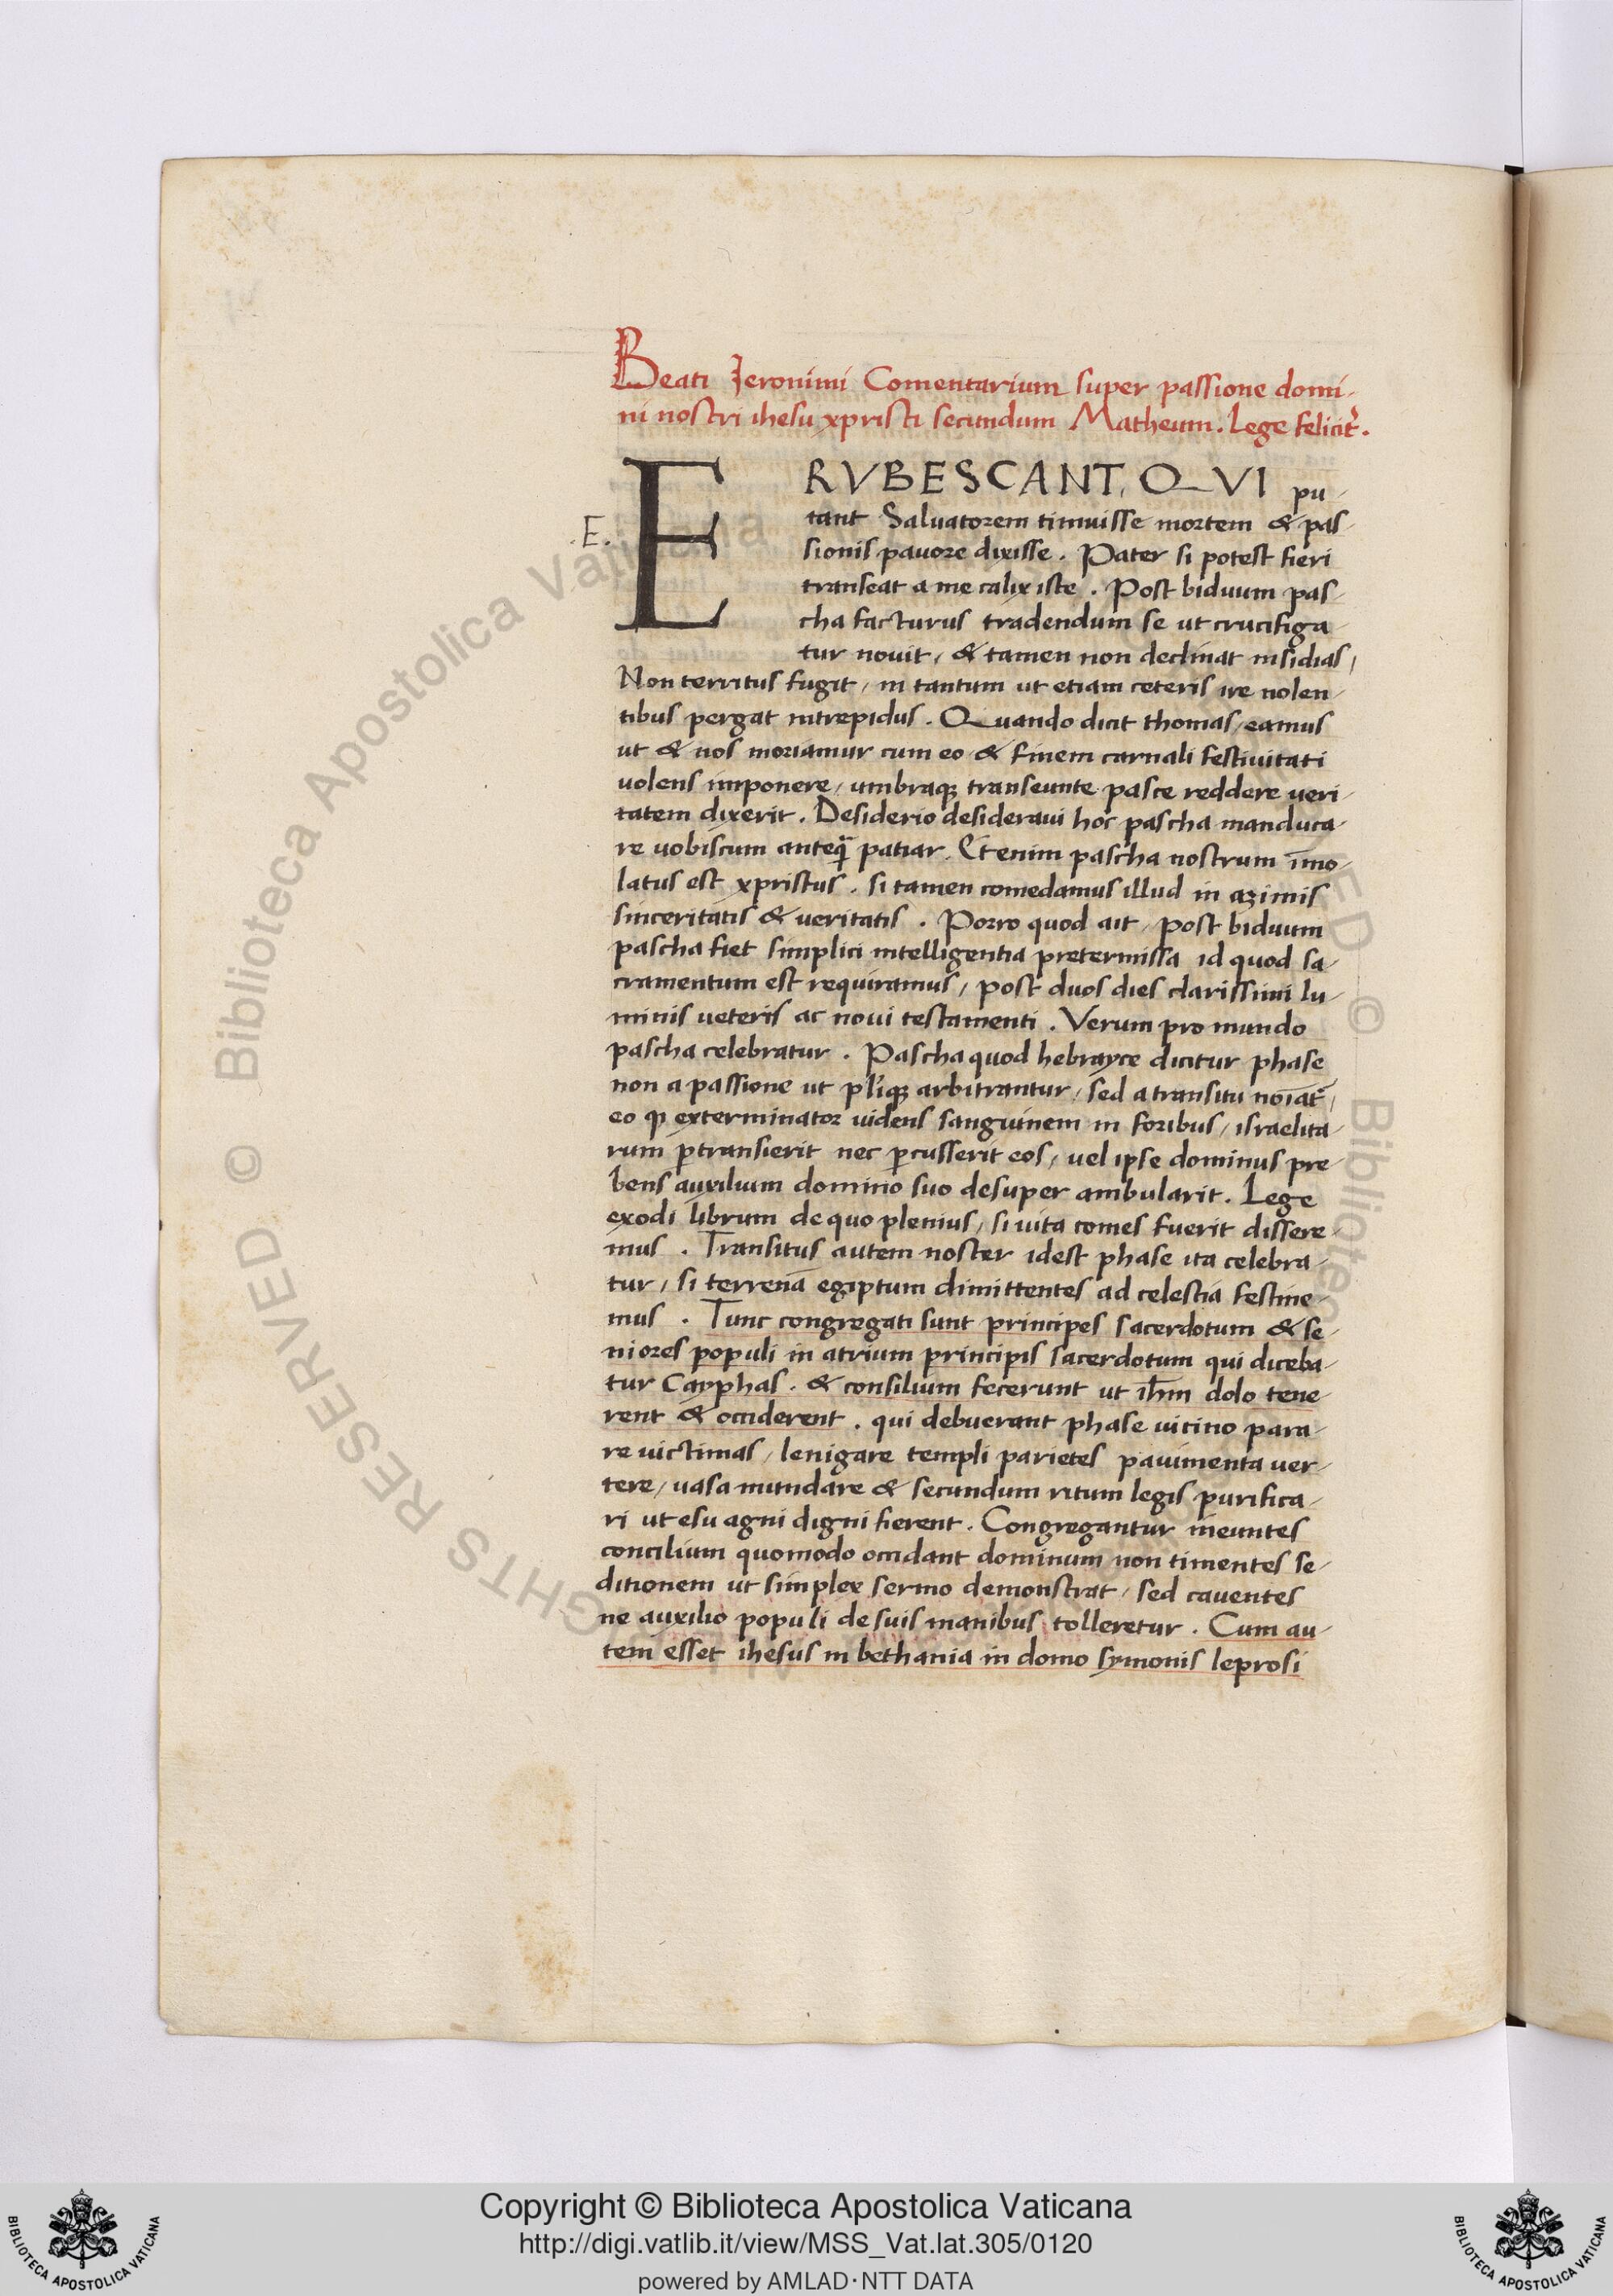 Beati Ieronimi Comentarium super passione domi-
ni nostri ihesu xpristi secundum Matheum. Lege felicit̃.
.E.
ERVBESCANT, QVI pu-
tant Saluatorem timuisse mortem & pas-
sionis pauore dixisse. Pater si potest fieri
transeat a me calix iste. Post biduum pas-
cha facturus tradendum se ut crucifiga-
tur nouit, & tamen non declinat insidias,
Non territus fugit, in tantum ut etiam ceteris ire nolen-
tibus pergat intrepidus. Quando dicit thomas, eamus
ut & nos moriamur cum eo & finem carnali festiuitati
uolens imponere, umbraqꝫ transeunte pasce reddere ueri-
tatem dixerit. Desiderio desideraui hoc pascha manduca-
re uobiscum anteq̃ patiar. Etenim pascha nostrum īmo-
latus est xpristus. si tamen comedamus illud in azimis
sinceritatis & ueritatis. Porro quod ait, post biduum
pascha fiet simplici intelligentia pretermissa id quod sa-
cramentum est requiramus, post duos dies clarissimi lu-
minis ueteris ac noui testamenti. Verum pro mundo
pascha celebratur. Pascha quod hebrayce dicitur phase
non a passione ut pl'iqꝫ arbitrantur, sed a transitu noiat̃,
eo ꝙ exterminator uidens sanguinem in foribus, israelita-
rum ꝑtransierit nec ꝑcusserit eos, uel ipse dominus pre-
bens auxilium domino suo desuper ambularit. Lege
exodi librum de quo plenius, si uita comes fuerit dissere-
mus. Transitus autem noster idest phase ita celebra-
tur, si terrenā egiptum dimittentes ad celestia festine-
mus. Tunc congregati sunt principes sacerdotum & se-
niores populi in atrium principis sacerdotum qui diceba-
tur Cayphas. & consilium fecerunt ut ih̄m dolo tene-
rent & occiderent. qui debuerant phase uicino para-
re uictimas, lenigare templi parietes pauimenta uer-
tere, uasa mundare & secundum ritum legis purifica-
ri ut esu agni digni fierent. Congregantur ineuntes
concilium quomodo occidant dominum non timentes se-
ditionem ut simplex sermo demonstrat, sed cauentes
ne auxilio populi de suis manibus tolleretur. Cum au-
tem esset ihesus in bethania in domo symonis leprosi
© Biblioteca Apostolica Vaticana
Copyright © Biblioteca Apostolica Vaticana
http://digi.vatlib.it/view/MSS_Vat.lat.305/0120
powered by AMLAD·NTT DATA
BIBLIOTECA APOSTOLICA VATICANA
BIBLIOTECA APOSTOLICA VATICANA